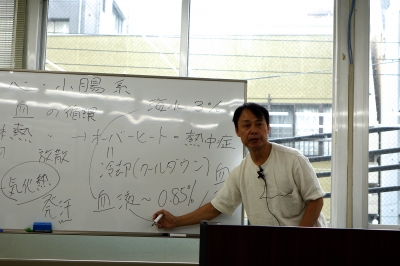 小腸系
血の循環
海水 3%
熱 → オーバーヒート = 熱中症
放散
冷却(クールダウン) 血
気化熱
発汗
血液～0.85%